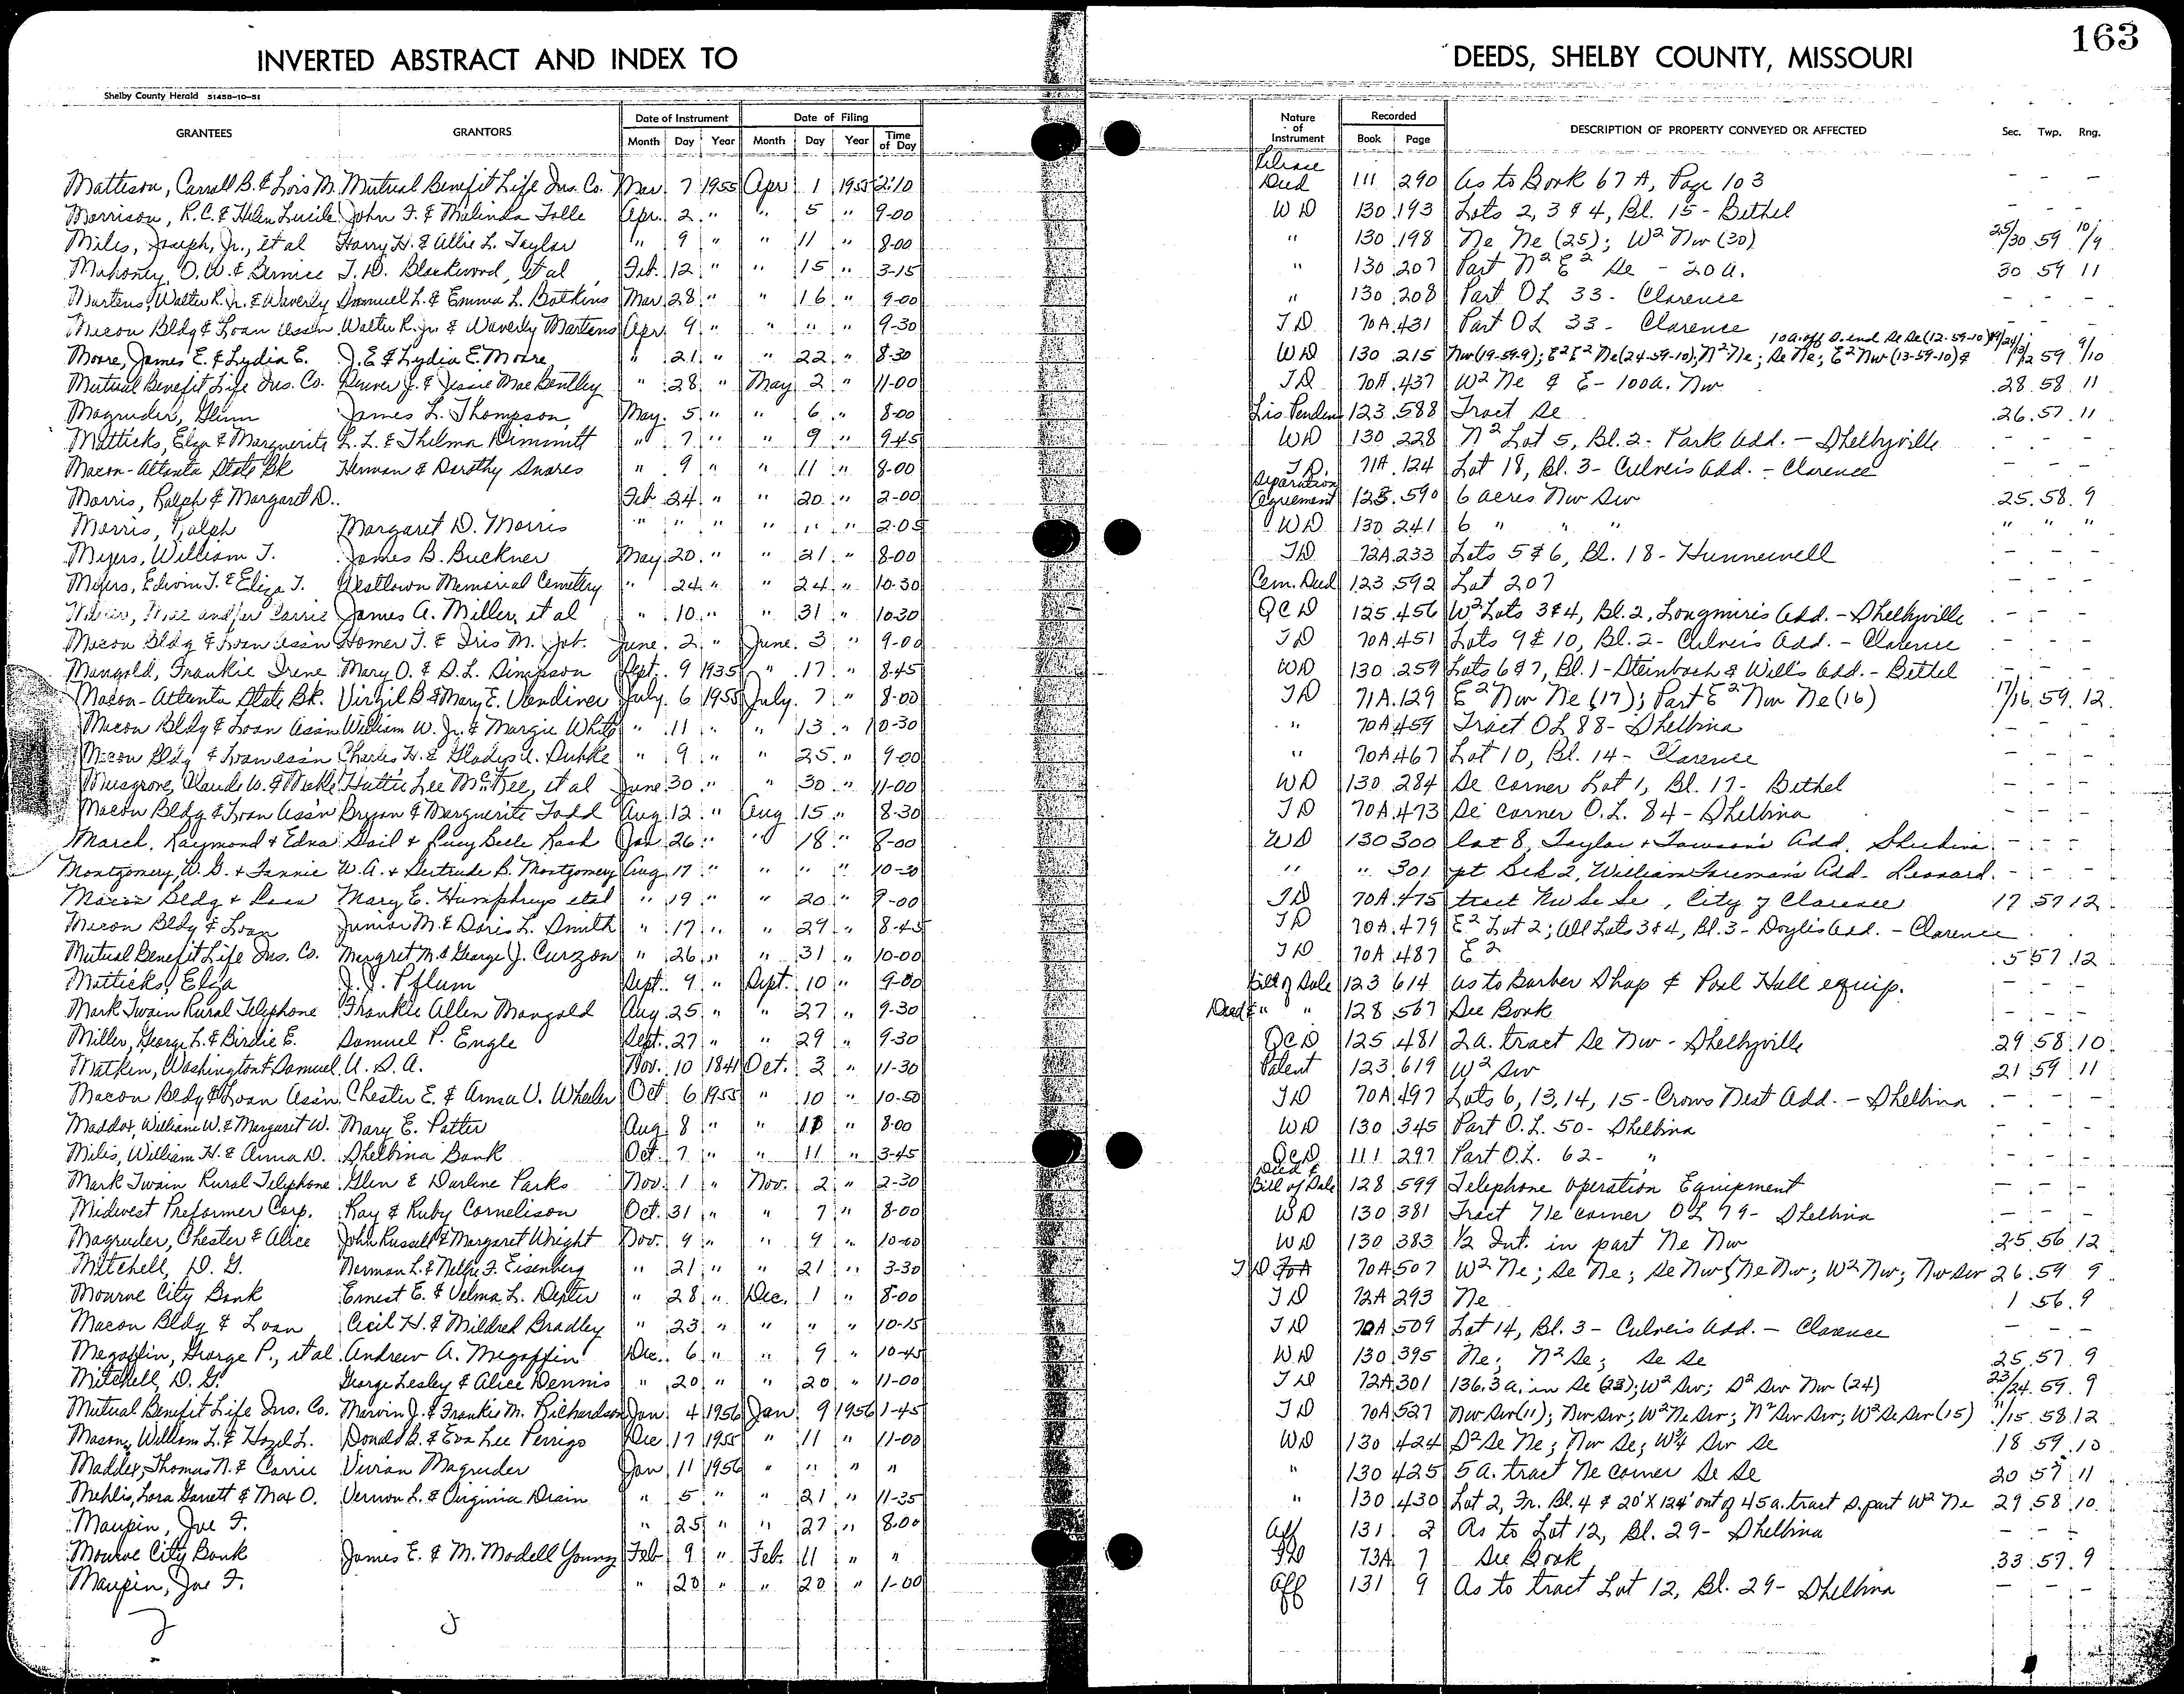 163
INVERTED ABSTRACT AND INDEX TO DEEDS, SHELBY COUNTY, MISSOURI
Shelby County Herald 51458-10-51
GRANTEES GRANTORS Date of Instrument Date of Filing Nature of Instrument Recorded DESCRIPTION OF PROPERTY CONVEYED OR AFFECTED Sec. Twp. Rng.
Month Day Year Month Day Year Time of Day Book Page
Mattison, Carroll B. & Lois M. Mutual Benefit Life Ins. Co. Mar 7 1955 Apr 1 1955 2:10 Release Deed 111 290 As to Book 67A, Page 103 - - -
Morrison, R.C. & Helen Lucile John F. & Malinda Tolle Apr. 2 " " 5 " 9-00 WD 130 193 Lots 2, 3 & 4, Bl. 15 - Bethel - - -
Miles, Joseph, Jr., et al Harry H. & Allie L. Taylor " 9 " " 11 " 8-00 " 130 198 Ne Ne (25); W² Nw (30) 25/30 59 10/9
Mahoney, O.W. & Bernice T.D. Blackwood, et al Feb. 12 " " 15 " 3-15 " 130 207 Part N² E² Se - 20a. 30 59 11
Martens, Walter R. Jr. & Waverly Samuel L. & Emma L. Botkins Mar 28 " " 16 " 9-00 " 130 208 Part OL 33 - Clarence - - -
Macon Bldg & Loan Assn Walter R. Jr. & Waverly Martens Apr 9 " " " " 9-30 TD 70A 431 Part OL 33 - Clarence
Moore, James E. & Lydia E. J.E. & Lydia E. Moore " 21 " " 22 " 8-30 WD 130 215 Nw (19-59-9); E² E² Ne (24-59-10); N² Ne; Se Ne; E² Nw (13-59-10) & 10a. off S. end Se Se (12-59-10) 19/24/13/12 59 9/10
Mutual Benefit Life Ins. Co. Denver J. & Jessie Mae Bentley " 28 " May 2 " 11-00 TD 70A 437 W² Ne & E-100a. Nw 28 58 11
Magruder, Glenn James L. Thompson May 5 " " 6 " 8-00 Lis Pendens 123 588 Tract Se 26 57 11
Matticks, Elza & Marguerite L.L. & Thelma Dimmitt " 7 " " 9 " 9-45 WD 130 228 N² Lot 5, Bl. 2 - Park Add. - Shelbyville - - -
Macon-Atlanta State Bk Herman & Dorothy Snares " 9 " " 11 " 8-00 TD. 71A 124 Lot 18, Bl. 3 - Culver's Add. - Clarence - - -
Morris, Ralph & Margaret D. Feb 24 " " 20 " 2-00 Separation Agreement 123 590 6 acres Nw Sw 25 58 9
Morris, Ralph Margaret D. Morris " " " " " " 2-05 WD 130 241 6 " " " " " "
Myers, William T. James B. Buckner May 20 " " 21 " 8-00 TD 72A 233 Lots 5 & 6, Bl. 18 - Hunnewell - - -
Myers, Edwin T. & Eliza T. Westlawn Memorial Cemetery " 24 " " 24 " 10-30 Cem. Deed 123 592 Lot 207 - - -
and/or Carrie James A. Miller, et al " 10 " " 31 " 10-30 QCD 125 456 W² Lots 3 & 4, Bl. 2, Longmire's Add. - Shelbyville - - -
Macon Bldg & Loan Assn Homer T. & Iris M. Job. June 2 " June 3 " 9-00 TD 70A 451 Lots 9 & 10, Bl. 2 - Culver's Add. - Clarence - - -
Mangold, Frankie Irene Mary O. & S.L. Simpson Sept. 9 1935 " 17 " 8-45 WD 130 259 Lots 6 & 7, Bl. 1 - Steinbach & Will's Add. - Bethel - - -
Macon-Atlanta State Bk. Virgil B & Mary E. Vandiver July 6 1955 July 7 " 8-00 TD 71A 129 E² Nw Ne (17); Part E² Nw Ne (16) 17/16 59 12
Macon Bldg & Loan Assn William W. Jr. & Margie White " 11 " " 13 " 10-30 " 70A 459 Tract OL 88 - Shelbina - - -
Macon Bldg & Loan Assn Charles H. & Gladys A. Dubke " 9 " " 25 " 9-00 " 70A 467 Lot 10, Bl. 14 - Clarence - - -
Musgrove, Claude W. & Hattie Lee McKee, et al June 30 " " 30 " 11-00 WD 130 284 Se corner Lot 1, Bl. 17 - Bethel - - -
Macon Bldg & Loan Assn Bryan & Marguerite Todd Aug 12 " Aug 15 " 8-30 TD 70A 473 Se corner O.L. 84 - Shelbina - - -
March, Raymond & Edna Gail & Lucy Belle Rash Jan 26 " " 18 " 8-00 WD 130 300 lot 8, Taylor & Towson's Add. Shelbina - - -
Montgomery, W.G. & Fannie W.A. & Gertrude B. Montgomery Aug 17 " " " " 10-30 " " 301 pt Blk 2, William Foreman's Add - Leonard. - - -
Macon Bldg & Loan Mary E. Humphreys et al " 19 " " 20 " 9-00 TD 70A 475 tract Nw Se Se, City of Clarence 17 57 12
Macon Bldg & Loan Junior M. & Doris L. Smith " 17 " " 29 " 8-45 TD 70A 479 E² Lot 2; All Lots 3 & 4, Bl. 3 - Doyle's Add. - Clarence
Mutual Benefit Life Ins. Co. Margret M. & George J. Curzon " 26 " " 31 " 10-00 TD 70A 487 E² 5 57 12
Matticks, Elza J.J. Pflum Sept. 9 " Sept. 10 " 9-00 Bill of Sale 123 614 As to Barber Shop & Pool Hall equip. - - -
Mark Twain Rural Telephone Frankie Allen Mangold Aug 25 " " 27 " 9-30 Deed & " " 128 567 See Book - - -
Miller, George L. & Birdie E. Samuel P. Engle Sept. 27 " " 29 " 9-30 QCD 125 481 2a. tract Se Nw - Shelbyville 29 58 10
Matkin, Washington & Samuel U.S.A. Nov. 10 1841 Oct. 3 " 11-30 Patent 123 619 W² Sw 21 59 11
Macon Bldg & Loan Assn. Chester E. & Anna V. Wheeler Oct 6 1955 " 10 " 10-50 TD 70A 497 Lots 6, 13, 14, 15 - Crows Nest Add. - Shelbina - - -
Maddox, William W. & Margaret W. Mary E. Patter Aug 8 " " " 8-00 WD 130 345 Part O.L. 50 - Shelbina - - -
Milis, William H. & Anna D. Shelbina Bank Oct. 7 " " 11 " 3-45 QCD 111 297 Part O.L. 62 - " - - -
Mark Twain Rural Telephone Glen & Darlene Parks Nov. 1 " Nov. 2 " 2-30 Deed & Bill of Sale 128 599 Telephone Operation Equipment - - -
Midwest Preformer Corp. Ray & Ruby Cornelison Oct. 31 " " 7 " 8-00 WD 130 381 Tract Ne corner OL 79 - Shelbina - - -
Magruder, Chester & Alice John Russell & Margaret Wright Nov. 9 " " 9 " 10-00 WD 130 383 1/2 Int. in part Ne Nw 25 56 12
Mitchell, D.G. Herman L. & Nellie F. Eisenberg " 21 " " 21 " 3-30 TD 70A 507 W² Ne; Se Ne; Se Nw; Ne Nw; W² Nw; Nw Sw 26 59 9
Monroe City Bank Ernest E. & Velma L. Depter " 28 " Dec. 1 " 8-00 TD 72A 293 Ne 1 56 9
Macon Bldg & Loan Cecil H. & Mildred Bradley " 23 " " " " 10-15 TD 70A 509 Lot 14, Bl. 3 - Culver's Add. - Clarence - - -
Megaffin, George P., et al Andrew A. Megaffin Dec. 6 " " 9 " 10-45 WD 130 395 Ne; N² Se; Se Se 25 57 9
Mitchell, D.G. George Lesley & Alice Dennis " 20 " " 20 " 11-00 TD 72A 301 136.3 a. in Se (23); W² Sw; S² Sw Nw (24) 23/24 59 9
Mutual Benefit Life Ins. Co. Marvin J. & Frankie M. Richardson Jan 4 1956 Jan. 9 1956 1-45 TD 70A 527 Nw Sw (11); Nw Sw; W² Ne Sw; N² Sw Sw; W² Se Sw (15) 11/15 58 12
Mason, William L. & Hazel L. Donald B. & Eva Lee Perrigo Dec 17 1955 " 11 " 11-00 WD 130 424 S² Se Ne; Nw Se; W 3/4 Sw Se 18 59 10
Maddex, Thomas N. & Carrie Vivian Magruder Jan 11 1956 " " " " " 130 425 5 a. tract Ne corner Se Se 20 57 11
Mehlis, Lora Garrett & Max O. Vernon L. & Virginia Drain " 5 " " 21 " 11-35 " 130 430 Lot 2, Fr. Bl. 4 & 20' X 124' out of 45 a. tract S. part W² Ne 29 58 10
Maupin, Joe F. " 25 " " 27 " 8:00 Aff 131 2 As to Lot 12, Bl. 29 - Shelbina - - -
Monroe City Bank James E. & M. Modell Young Feb 9 " Feb. 11 " " TD 73A 7 See Book 33 57 9
Maupin, Joe F. " 20 " " 20 " 1-00 Aff 131 9 As to tract Lot 12, Bl. 29 - Shelbina - - -